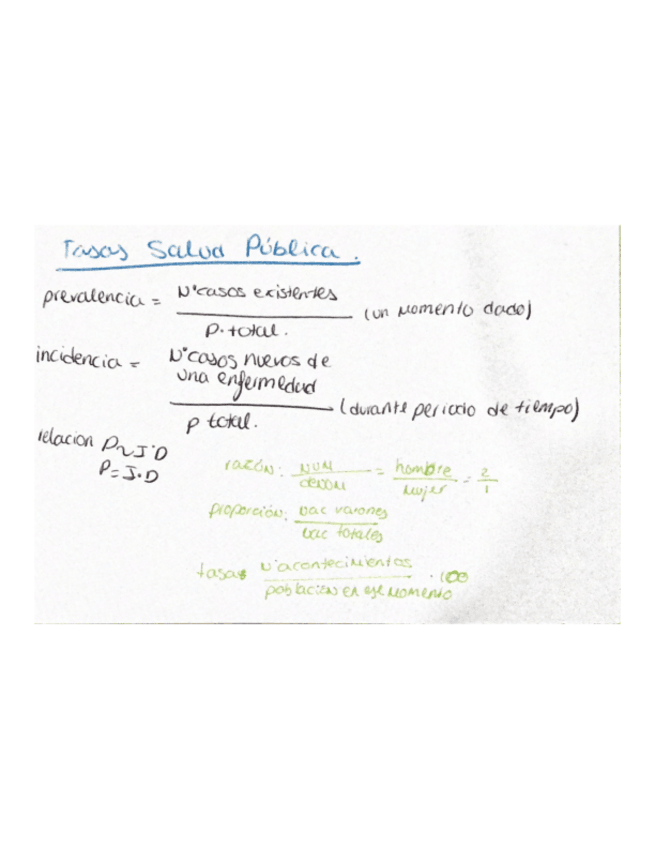 Tasas Salud Pública.
prevalencia = Nº casos existentes
p. total.
(un momento dado)
incidencia = Nº casos nuevos de
una enfermedad
p total.
(durante periodo de tiempo)
relacion P~I·D
P=I·D
razón: NUM = hombre = 2
denom mujer 1
proporción: vac varones
vac totales
tasas Nº acontecimientos · 100
población en ese momento